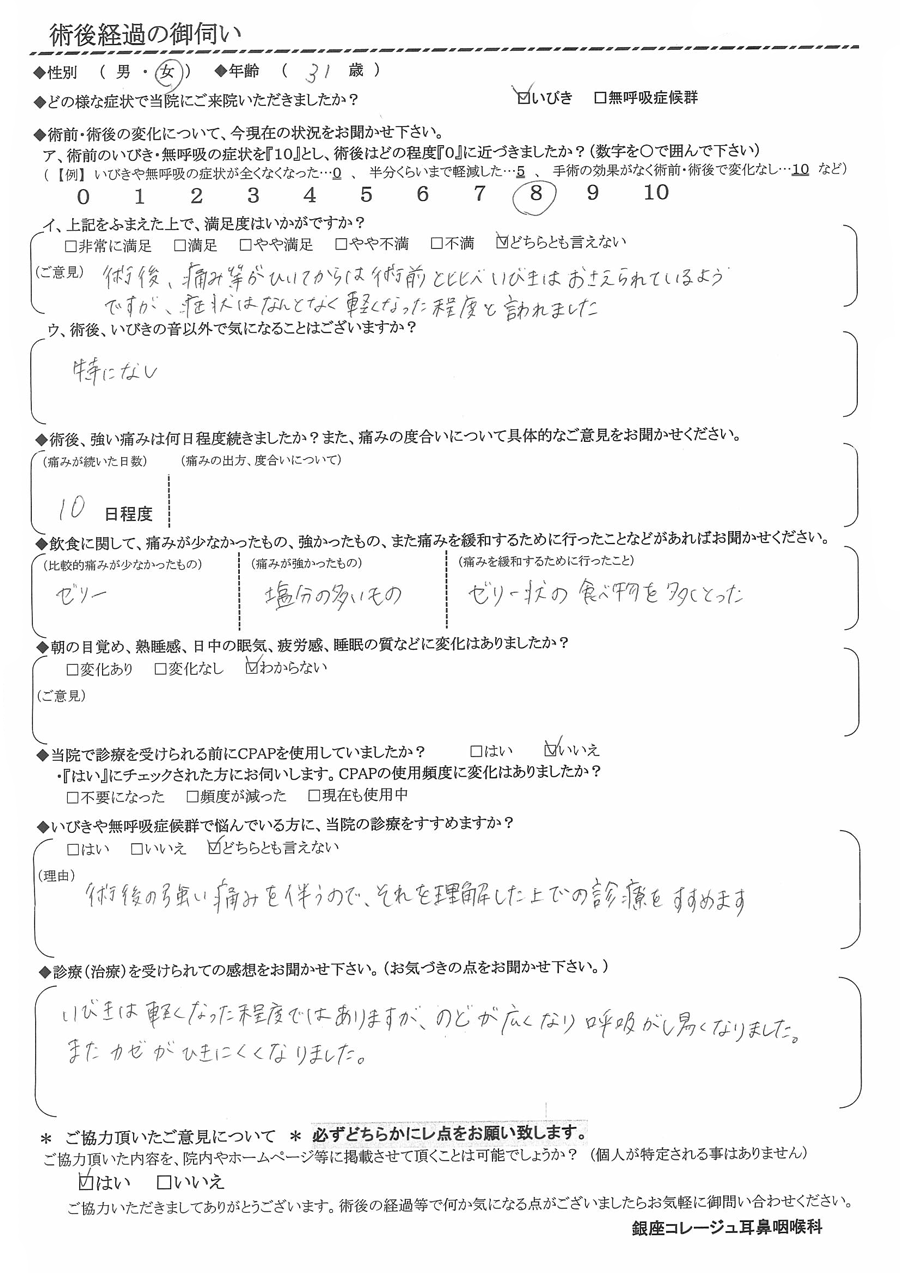 術後経過の御伺い
◆性別 （ 男 ・ 女 ） ◆年齢 （ 31 歳 ）
◆どの様な症状で当院にご来院いただきましたか？ ☑いびき □無呼吸症候群
◆術前・術後の変化について、今現在の状況をお聞かせ下さい。
ア、術前のいびき・無呼吸の症状を『10』とし、術後はどの程度『0』に近づきましたか？（数字を〇で囲んで下さい）
（【例】 いびきや無呼吸の症状が全くなくなった…0 、 半分くらいまで軽減した…5 、 手術の効果がなく術前・術後で変化なし…10 など）
0 1 2 3 4 5 6 7 8 9 10
イ、上記をふまえた上で、満足度はいかがですか？
□非常に満足 □満足 □やや満足 □やや不満 □不満 ☑どちらとも言えない
（ご意見） 術後、痛み等がひいてからは術前と比べいびきはおさえられているよう
ですが、症状はなんとなく軽くなった程度と言われました
ウ、術後、いびきの音以外で気になることはございますか？
特になし
◆術後、強い痛みは何日程度続きましたか？また、痛みの度合いについて具体的なご意見をお聞かせください。
（痛みが続いた日数） （痛みの出方、度合いについて）
10 日程度
◆飲食に関して、痛みが少なかったもの、強かったもの、また痛みを緩和するために行ったことなどがあればお聞かせください。
（比較的痛みが少なかったもの） （痛みが強かったもの） （痛みを緩和するために行ったこと）
ゼリー 塩分の多いもの ゼリー状の食べ物を多くとった
◆朝の目覚め、熟睡感、日中の眠気、疲労感、睡眠の質などに変化はありましたか？
□変化あり □変化なし ☑わからない
（ご意見）
◆当院で診療を受けられる前にCPAPを使用していましたか？ □はい ☑いいえ
・『はい』にチェックされた方にお伺いします。CPAPの使用頻度に変化はありましたか？
□不要になった □頻度が減った □現在も使用中
◆いびきや無呼吸症候群で悩んでいる方に、当院の診療をすすめますか？
□はい □いいえ ☑どちらとも言えない
（理由） 術後の強い痛みを伴うので、それを理解した上での診療をすすめます
◆診療（治療）を受けられての感想をお聞かせ下さい。（お気づきの点をお聞かせ下さい。）
いびきは軽くなった程度ではありますが、のどが広くなり呼吸がし易くなりました。
またカゼがひきにくくなりました。
＊ ご協力頂いたご意見について ＊ 必ずどちらかにレ点をお願い致します。
ご協力頂いた内容を、院内やホームページ等に掲載させて頂くことは可能でしょうか？ （個人が特定される事はありません）
☑はい □いいえ
ご協力いただきましてありがとうございます。術後の経過等で何か気になる点がございましたらお気軽に御問い合わせください。
銀座コレージュ耳鼻咽喉科